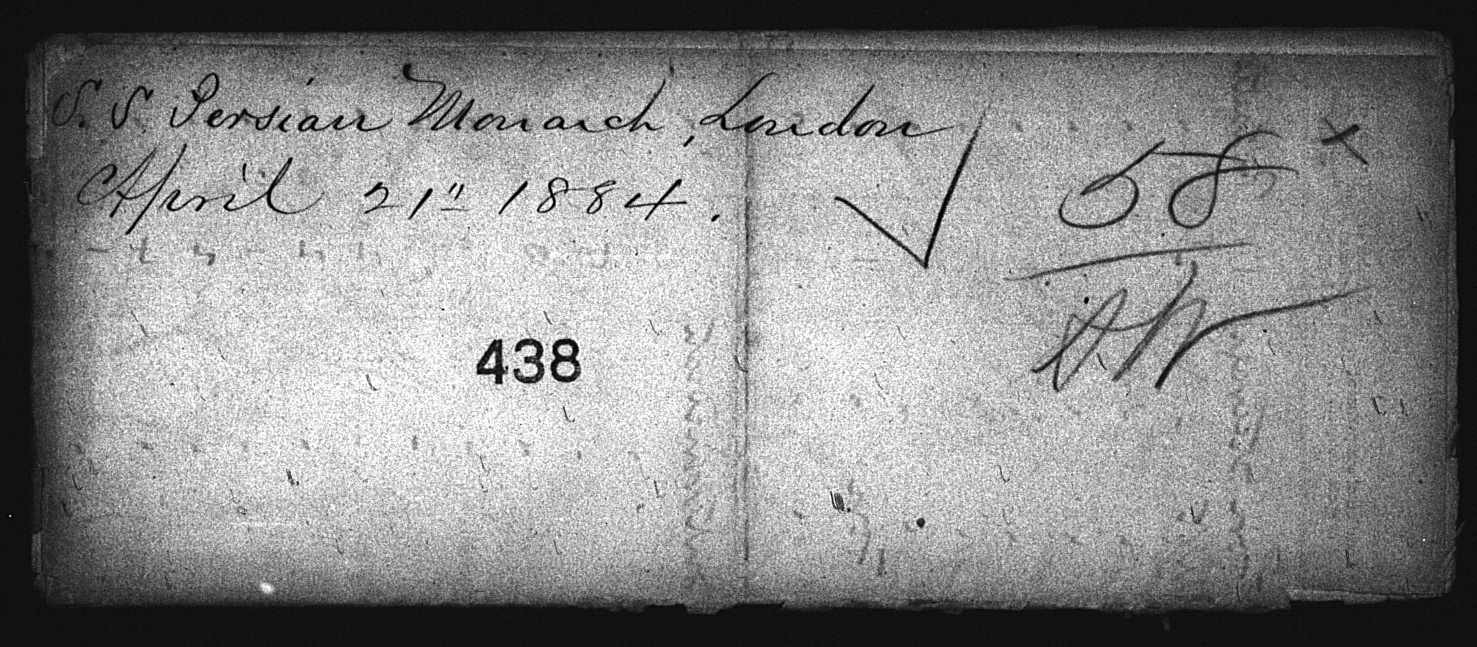 S. S. Persian Monarch, London
April 21" 1884.
58
438